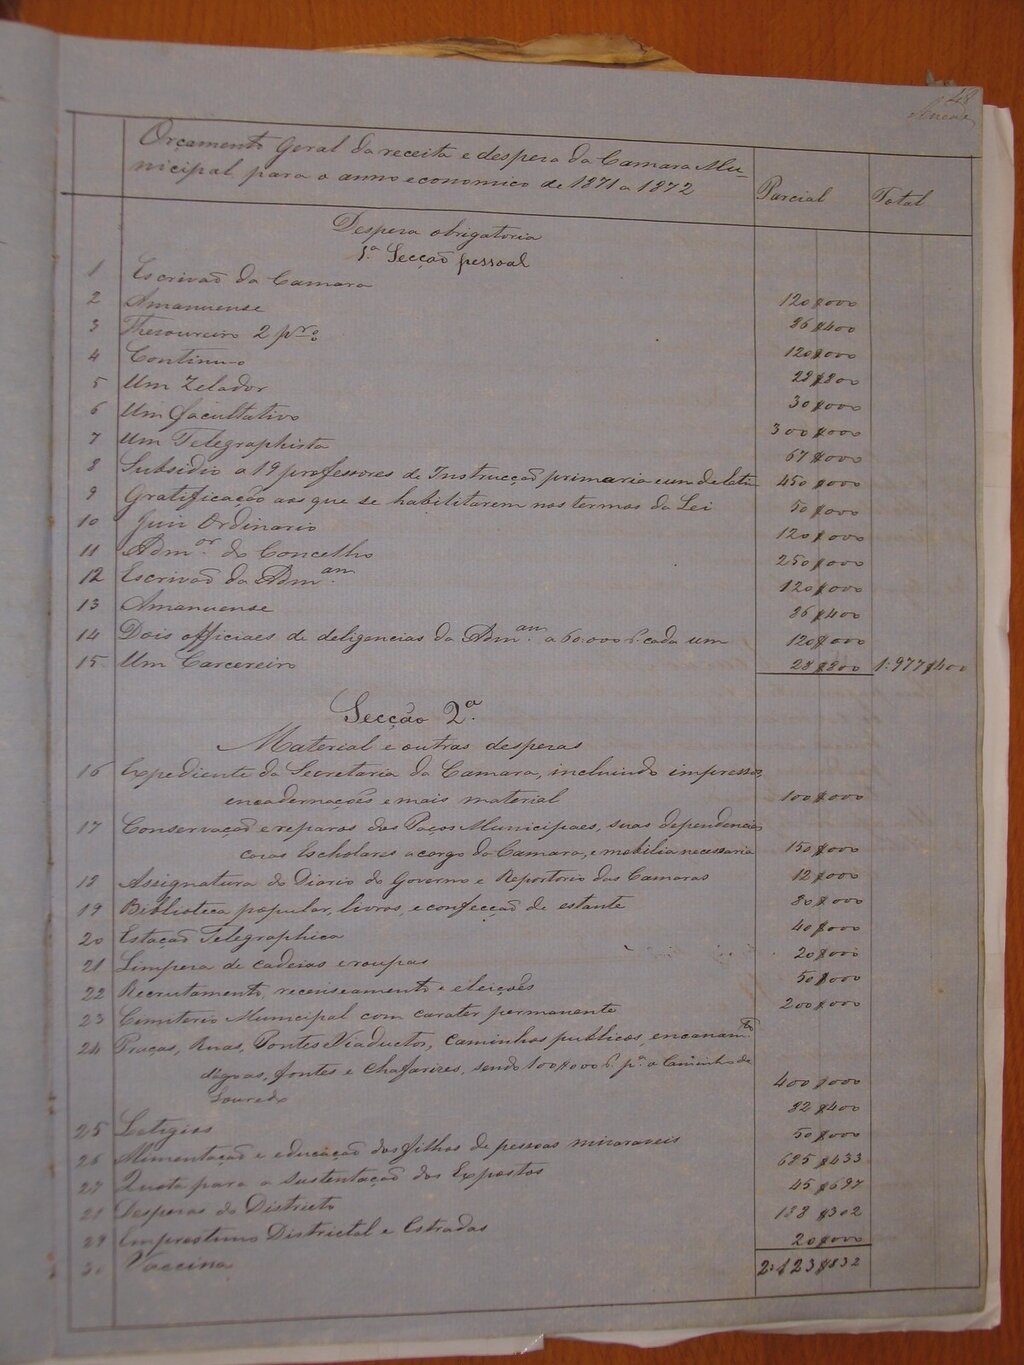 48
Orçamento Geral da receita e despeza da Camara Mu-
nicipal para o anno economico de 1871 a 1872
Parcial Total
Despeza obrigatoria
1.ª Secção pessoal
1 Escrivaõ da Camara 120$000
2 Amanuense 86$400
3 Thesoureiro 2 pr.º 120$000
4 Continuo 28$800
5 Um Zelador 30$000
6 Um facultativo 300$000
7 Um Telegraphista 67$000
8 Subsidio a 19 professores de Instrucçaõ primaria e um de latim 450$000
9 Gratificação aos que se habilitarem nos termos da Lei 50$000
10 Juiz Ordinario 120$000
11 Adm.or do Concelho 250$000
12 Escrivaõ da Adm.am 120$000
13 Amanuense 86$400
14 Dois officiaes de deligencias da Adm.am a 60:000 r.s cada um 120$000
15 Um Carcereiro 28$800 1:977$400
Secção 2.ª
Material e outras despezas
16 Expediente da Secretaria da Camara, incluindo impressos,
encadernações e mais material 100$000
17 Conservaçaõ e reparos dos Paços Municipaes, suas dependencias
casas Escholares a cargo da Camara, e mobilia necessaria 150$000
18 Assignatura do Diario do Governo e Reportorio das Camaras 12$000
19 Biblioteca popular, livros, e confecçaõ de estante 80$000
20 Estaçaõ Telegraphica 40$000
21 Limpeza de cadeias e roupas 20$000
22 Recrutamento, recenseamento e eleições 50$000
23 Cemiterio Municipal com carater permanente 200$000
24 Praças, Ruas, Pontes e Viaductos, caminhos publicos, encanam.to
d'agoas, fontes e chafarizes, sendo 100$000 r.s p.ª o Caminho de
Louredo 400$000
25 Letigios 82$400
26 Alimentaçaõ e educaçaõ dos filhos de pessoas miseraveis 50$000
27 Quota para a sustentaçaõ dos Expostos 685$433
28 Despezas do Districto 45$697
29 Emprestimo Districtal e Estradas 188$302
30 Vaccina 20$000
2:123$832